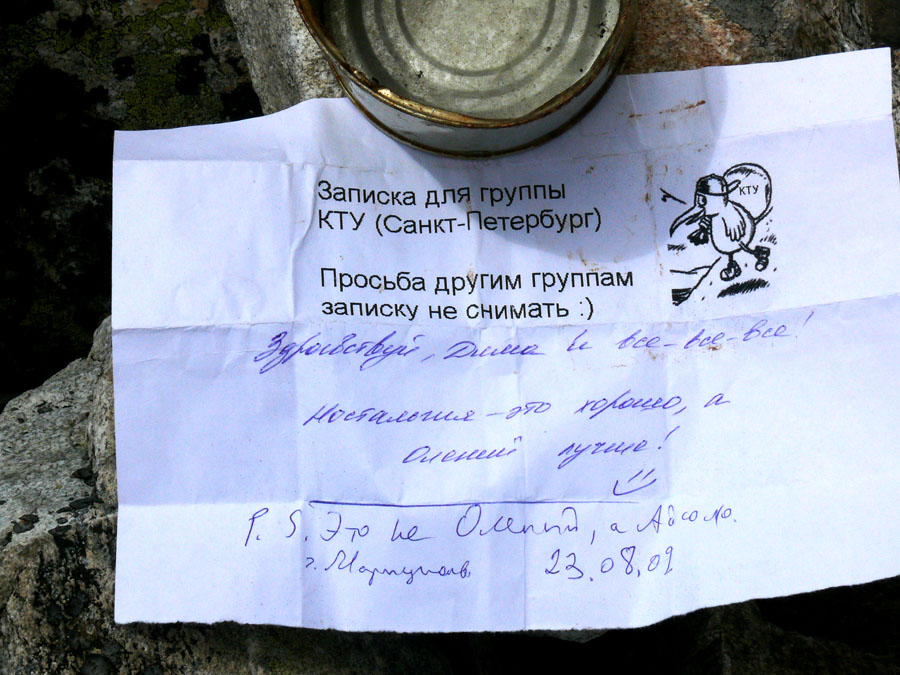 Записка для группы
КТУ (Санкт-Петербург)
КТУ
Просьба другим группам
записку не снимать :)
Здравствуй, Дима и все-все-все!
Ностальгия - это хорошо, а
Олений лучше!
P. S. Это не Олений, а Абсо но.
г. Мариуполь 23.08.09